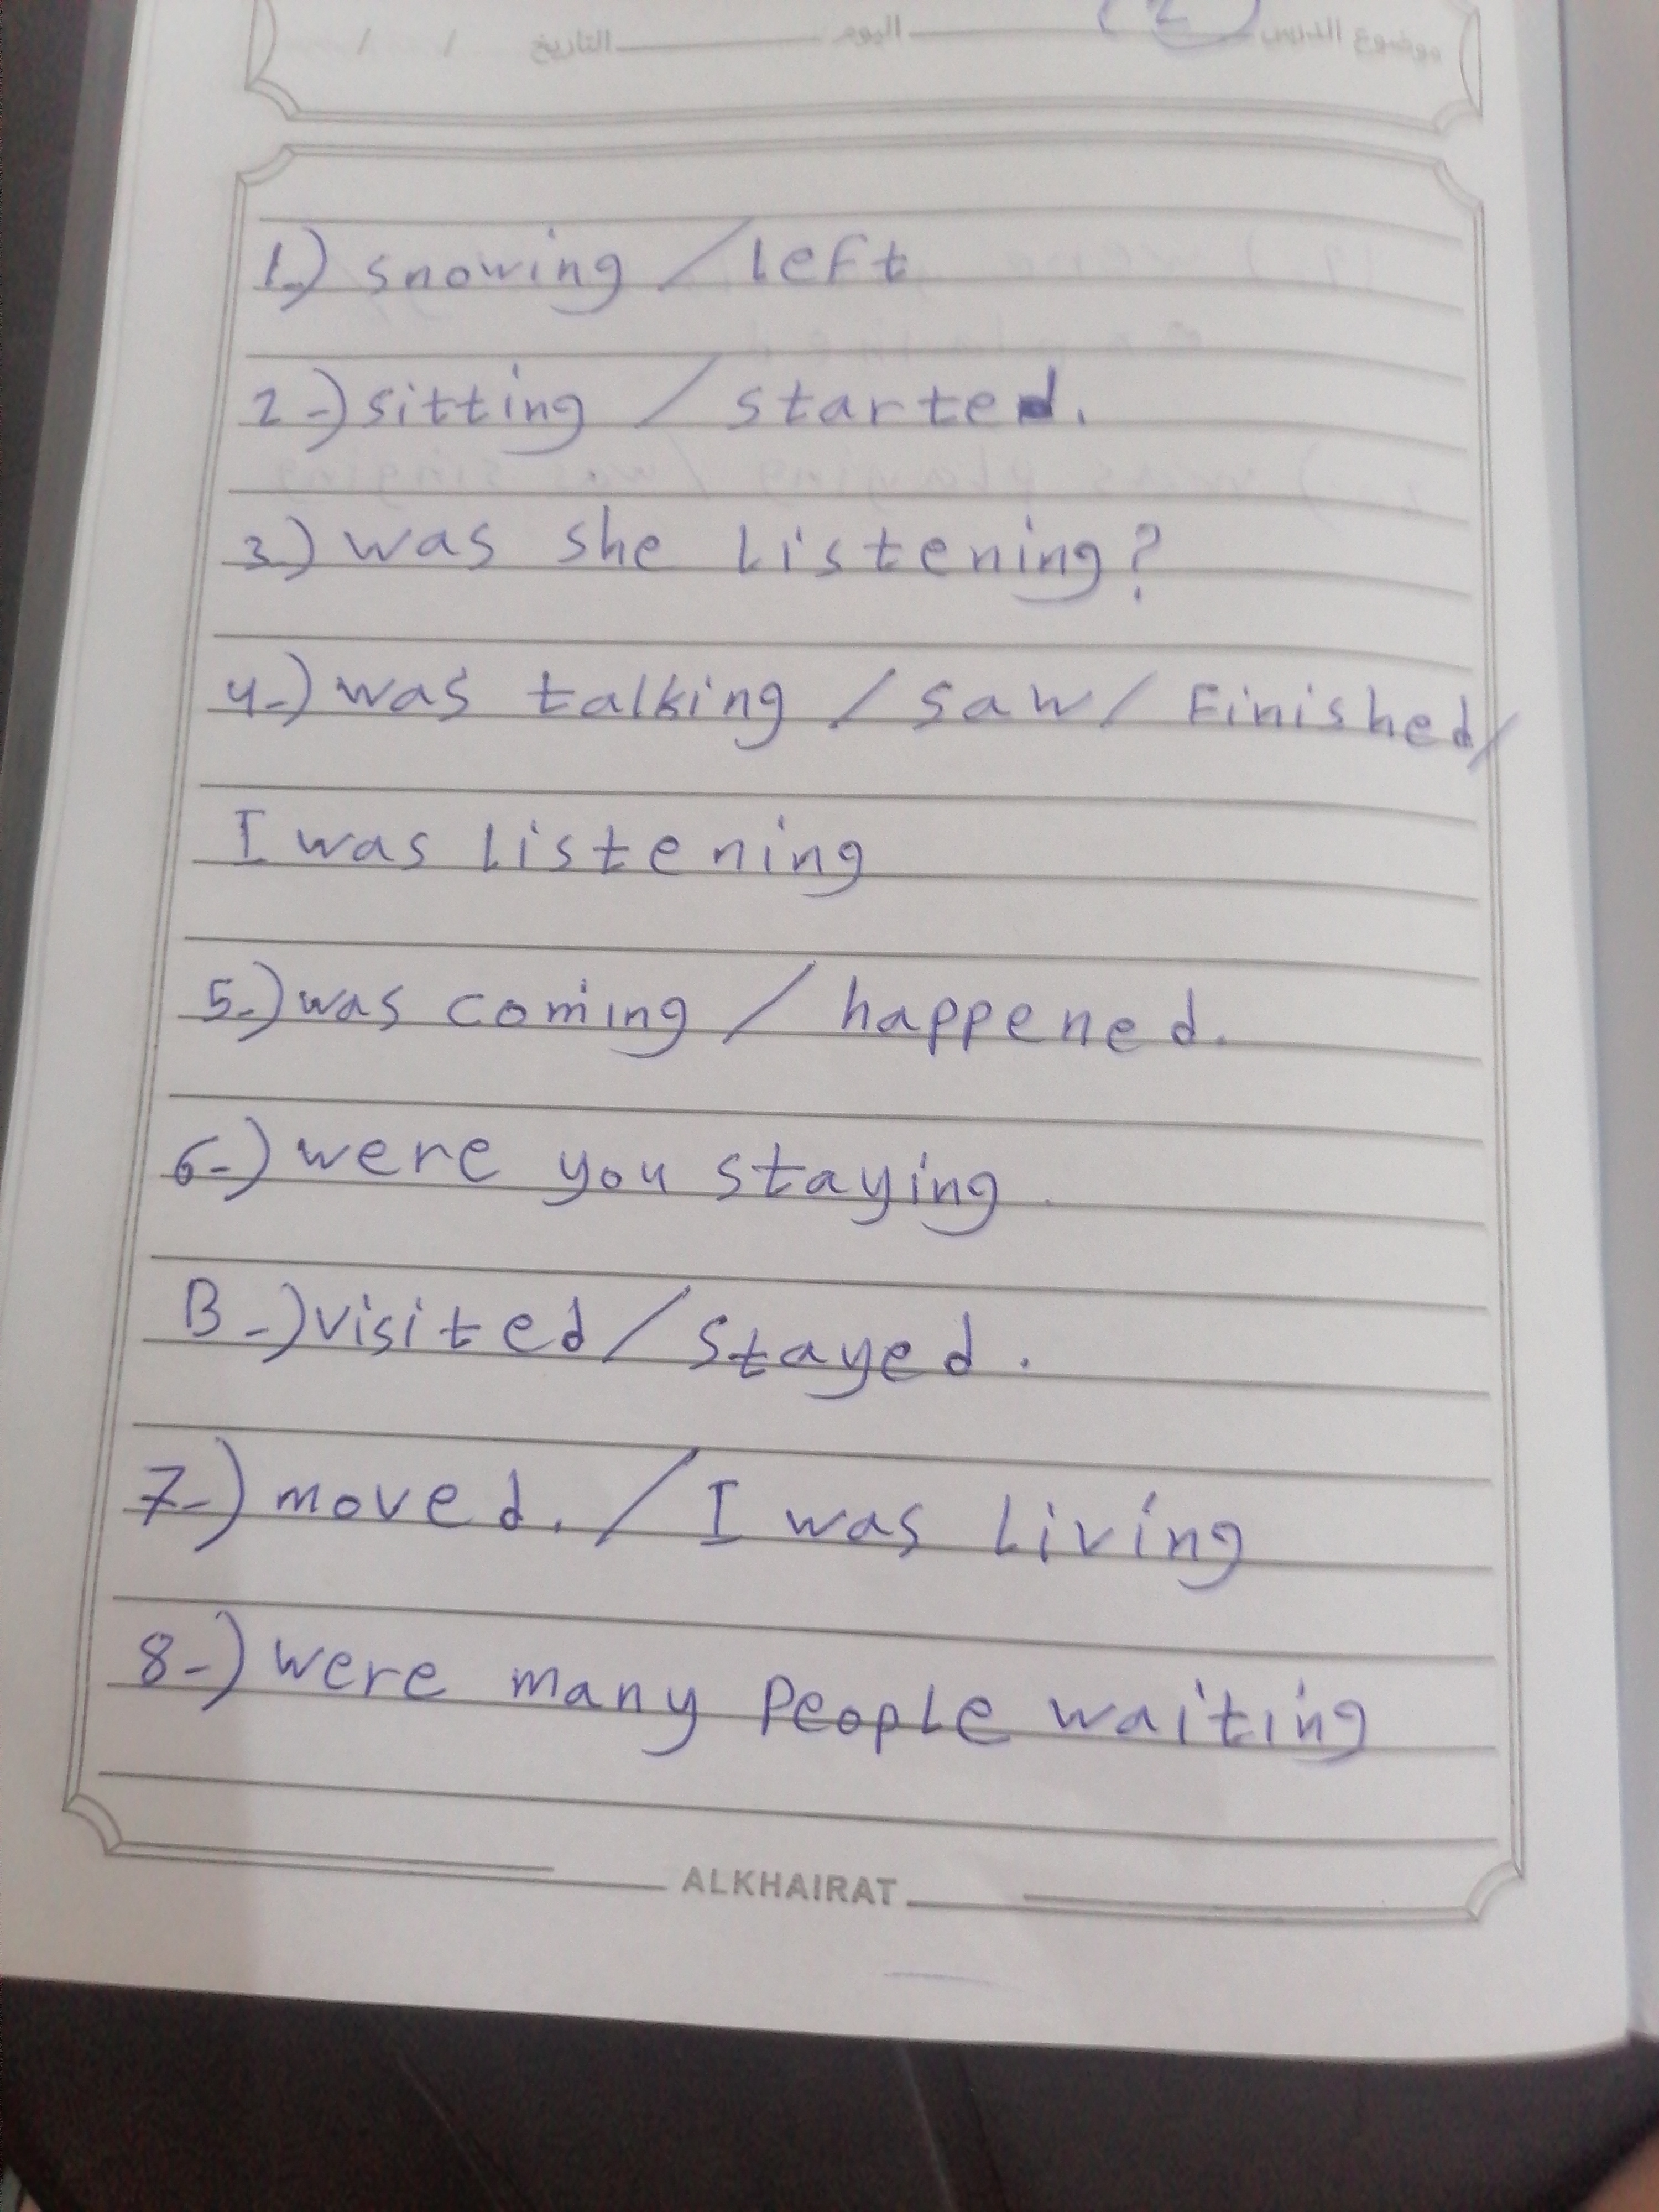 موضوع الدرس (2) اليوم التاريخ / /
1-) snowing / left
2-) sitting / started.
3-) was she listening?
4-) was talking / saw / Finished /
I was listening
5-) was coming / happened.
6-) were you staying
B-) visited / stayed.
7-) moved. / I was living
8-) were many people waiting
ALKHAIRAT